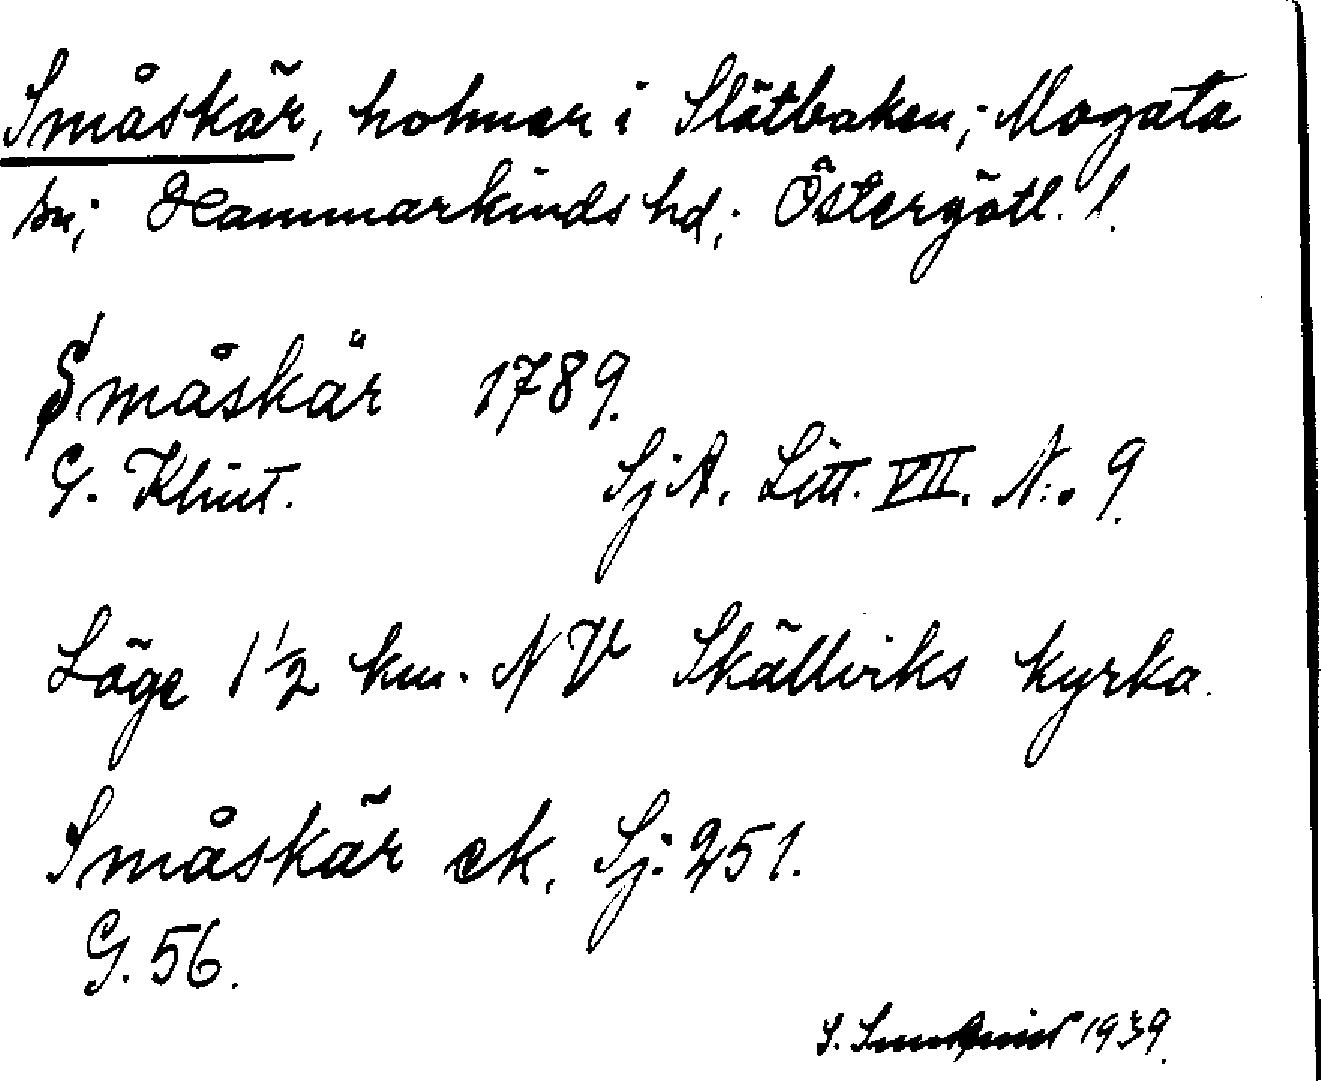 Småskär, holmar i Slätbaken; Mogata
sn; Hammarkinds hd; Östergötl. l.
Småskär 1789.
G. Klint. SjA. Litt. VII. N:o 9.
Läge 1 1/2 km. NV Skällviks kyrka.
Småskär ek. Sj. 251.
G. 56.
S. 1939.